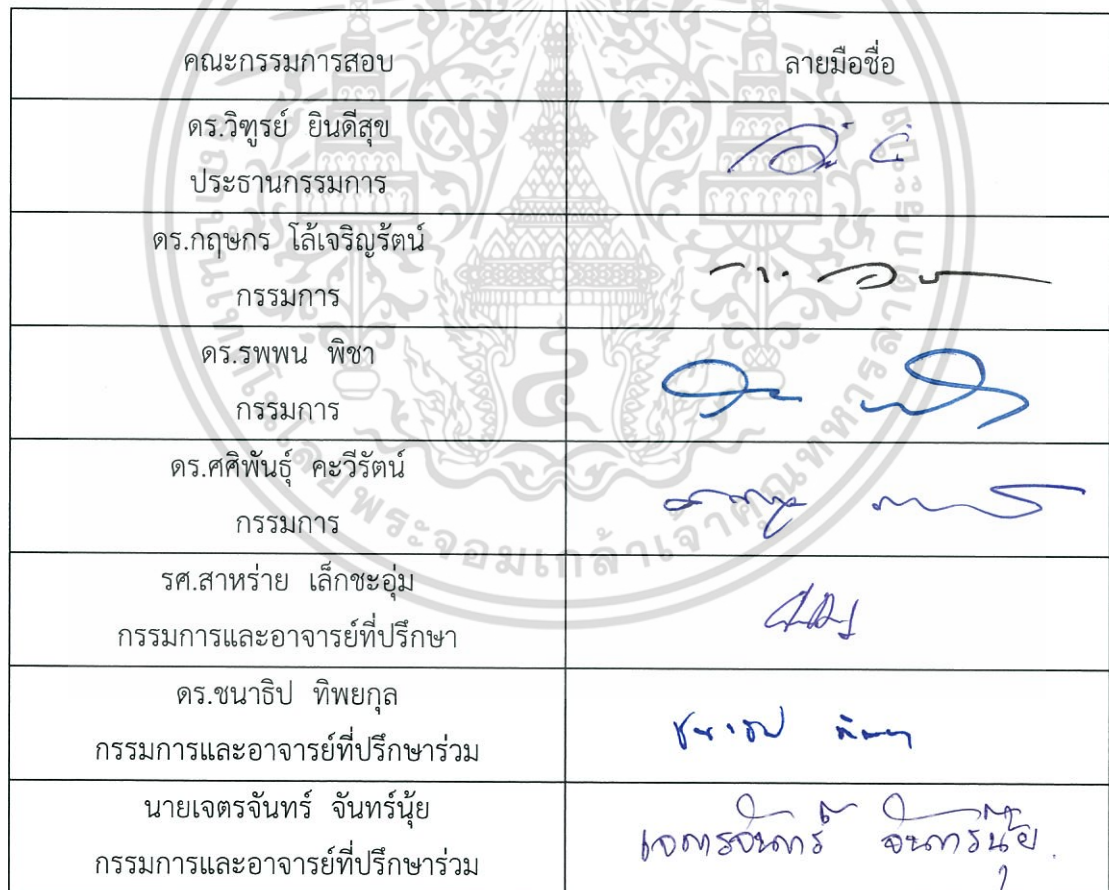 คณะกรรมการสอบ ลายมือชื่อ
ดร.วิฑูรย์ ยินดีสุข
ประธานกรรมการ
ดร.กฤษกร โล้เจริญรัตน์
กรรมการ
ดร.รพพน พิชา
กรรมการ
ดร.ศศิพันธุ์ คะวีรัตน์
กรรมการ
รศ.สาหร่าย เล็กชะอุ่ม
กรรมการและอาจารย์ที่ปรึกษา
ดร.ชนาธิป ทิพยกุล
กรรมการและอาจารย์ที่ปรึกษาร่วม
นายเจตรจันทร์ จันทร์นุ้ย
กรรมการและอาจารย์ที่ปรึกษาร่วม
เจตรจันทร์ จันทร์นุ้ย
พระจอมเกล้าเจ้าคุณทหารลาดกระบัง